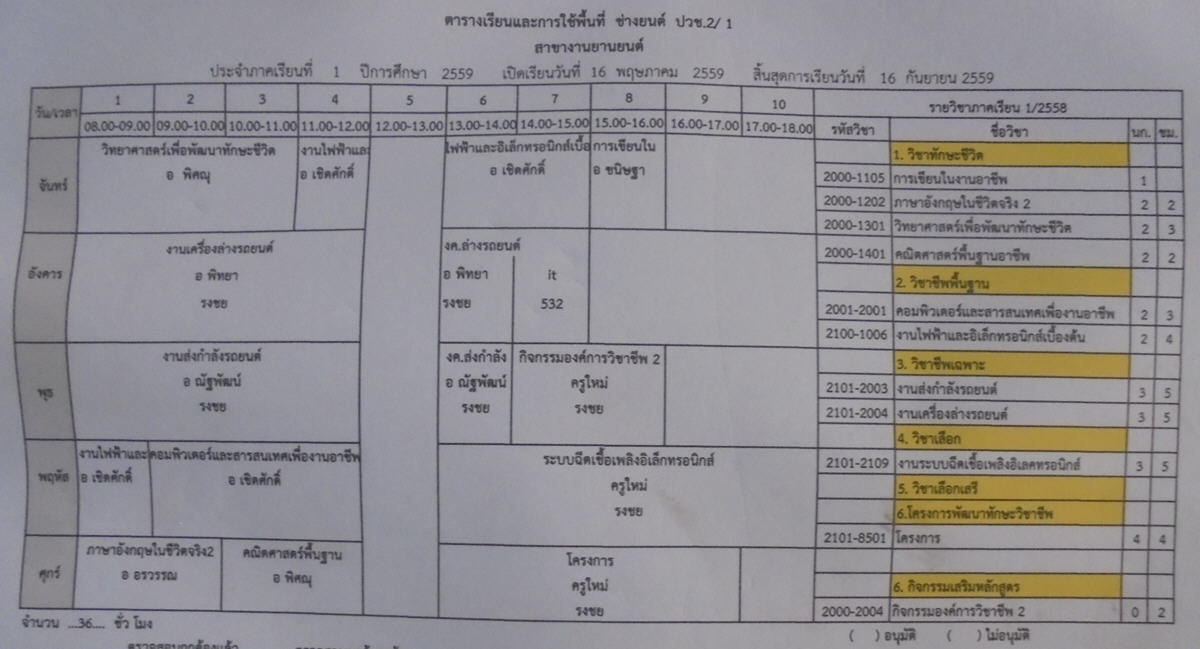 ตารางเรียนและการใช้พื้นที่ ช่างยนต์ ปวช.2/ 1
สาขางานยานยนต์
ประจำภาคเรียนที่ 1 ปีการศึกษา 2559 เปิดเรียนวันที่ 16 พฤษภาคม 2559 สิ้นสุดการเรียนวันที่ 16 กันยายน 2559
วัน/เวลา 1 2 3 4 5 6 7 8 9 10 รายวิชาภาคเรียน 1/2558
08.00-09.00 09.00-10.00 10.00-11.00 11.00-12.00 12.00-13.00 13.00-14.00 14.00-15.00 15.00-16.00 16.00-17.00 17.00-18.00 รหัสวิชา ชื่อวิชา นก. ชม.
จันทร์
วิทยาศาสตร์เพื่อพัฒนาทักษะชีวิต งานไฟฟ้าและ ไฟฟ้าและอิเล็กทรอนิกส์เบื้อ การเขียนใน
อ พิศณุ อ เชิดศักดิ์ อ เชิดศักดิ์ อ ขนิษฐา
อังคาร
งานเครื่องล่างรถยนต์ งค.ล่างรถยนต์
อ พิทยา อ พิทยา it
รงชย รงชย 532
พุธ
งานส่งกำลังรถยนต์ งค.ส่งกำลัง กิจกรรมองค์การวิชาชีพ 2
อ ณัฐพัฒน์ อ ณัฐพัฒน์ ครูใหม่
รงชย รงชย รงชย
พฤหัส
งานไฟฟ้าและ คอมพิวเตอร์และสารสนเทศเพื่องานอาชีพ ระบบฉีดเชื้อเพลิงอิเล็กทรอนิกส์
อ เชิดศักดิ์ อ เชิดศักดิ์ ครูใหม่
รงชย
ศุกร์
ภาษาอังกฤษในชีวิตจริง2 คณิตศาสตร์พื้นฐาน โครงการ
อ อรวรรณ อ พิศณุ ครูใหม่
รงชย
1. วิชาทักษะชีวิต
2000-1105 การเขียนในงานอาชีพ 1
2000-1202 ภาษาอังกฤษในชีวิตจริง 2 2 2
2000-1301 วิทยาศาสตร์เพื่อพัฒนาทักษะชีวิต 2 3
2000-1401 คณิตศาสตร์พื้นฐานอาชีพ 2 2
2. วิชาชีพพื้นฐาน
2001-2001 คอมพิวเตอร์และสารสนเทศเพื่องานอาชีพ 2 3
2100-1006 งานไฟฟ้าและอิเล็กทรอนิกส์เบื้องต้น 2 4
3. วิชาชีพเฉพาะ
2101-2003 งานส่งกำลังรถยนต์ 3 5
2101-2004 งานเครื่องล่างรถยนต์ 3 5
4. วิชาเลือก
2101-2109 งานระบบฉีดเชื้อเพลิงอิเลคทรอนิกส์ 3 5
5. วิชาเลือกเสรี
6.โครงการพัฒนาทักษะวิชาชีพ
2101-8501 โครงการ 4 4
6. กิจกรรมเสริมหลักสูตร
2000-2004 กิจกรรมองค์การวิชาชีพ 2 0 2
จำนวน ...36.... ชั่วโมง
( ) อนุมัติ ( ) ไม่อนุมัติ